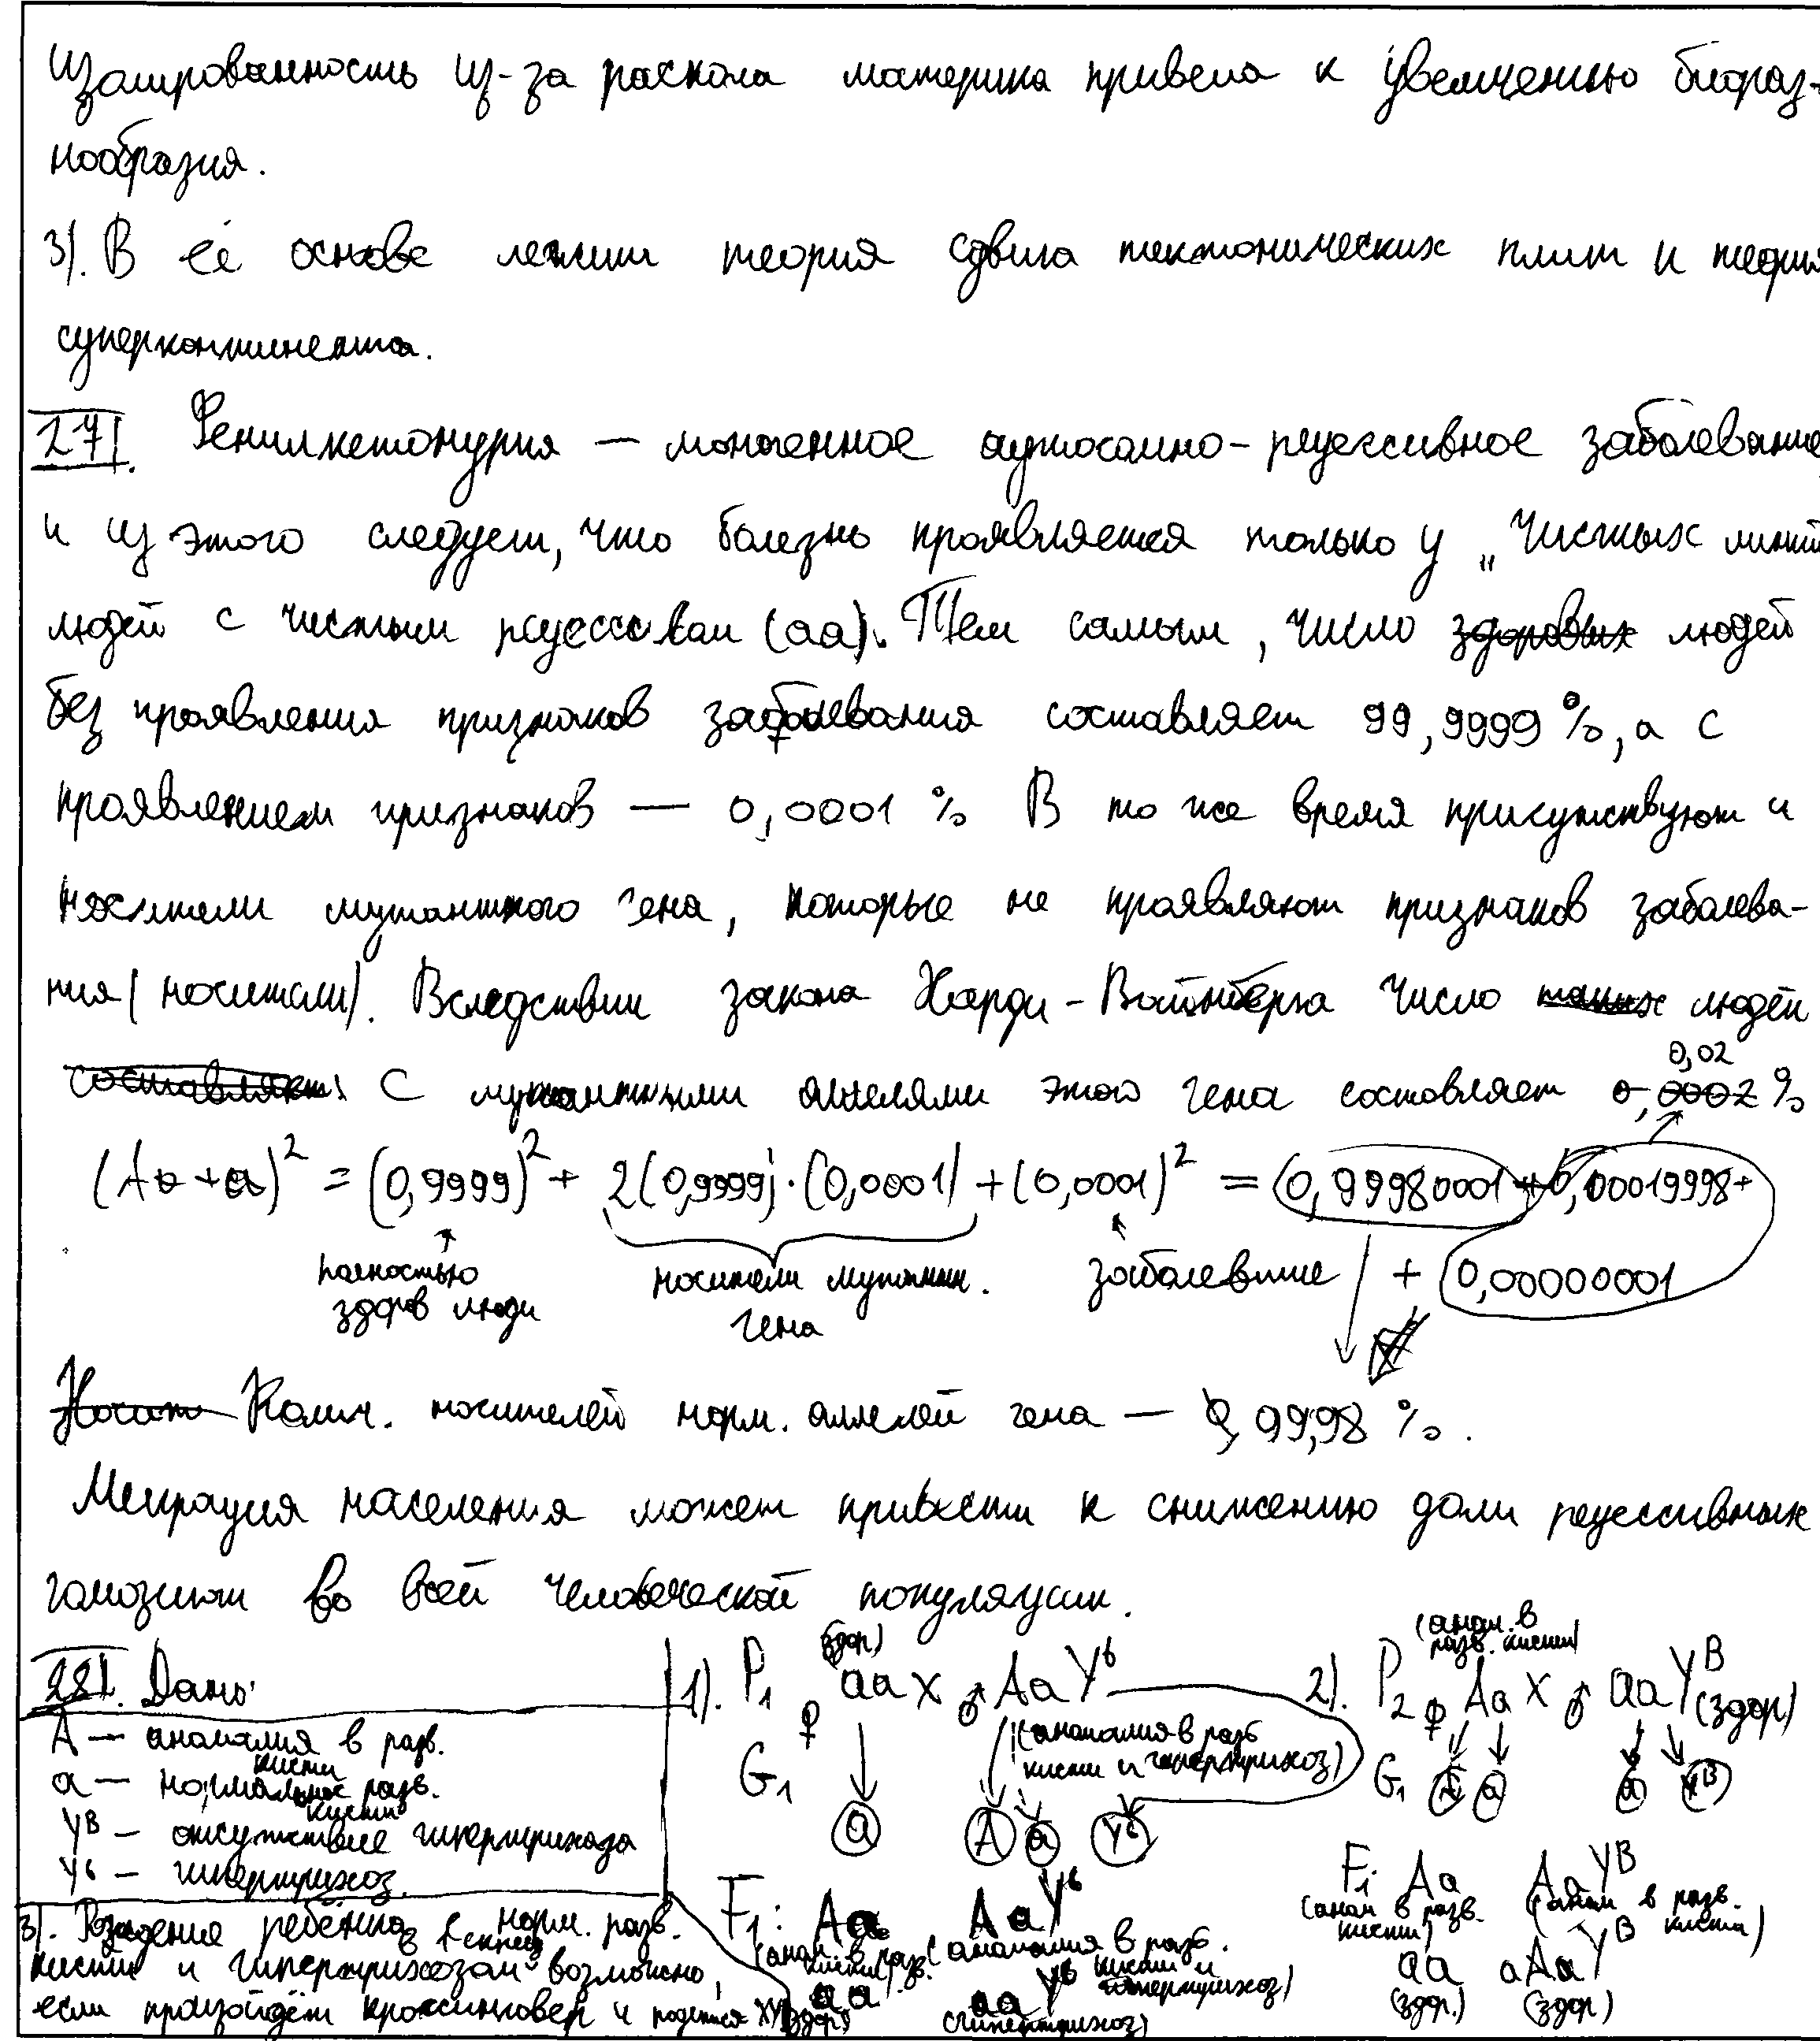 Изолированность из-за раскола материка привела к увеличению биораз-
нообразия.
3). В её основе лежит теория сдвига тектонических плит и теория
суперконтинента.
27). Фенилкетонурия — моногенное аутосомно-рецессивное заболевание,
и из этого следует, что болезнь проявляется только у „чистых линий
людей с чистым рецессивом (аа). Тем самым, число здоровых людей
без проявления признаков заболевания составляет 99,9999 %, а с
проявлением признаков — 0,0001 % В то же время присутствуют и
носители мутантного гена, которые не проявляют признаков заболева-
ния (носители). Вследствии закона Харди-Вайнберга число таких людей
составляет с мутантными аллелями этого гена составляет 0,0002 %
0,02
(A + a)² = (0,9999)² + 2(0,9999)·(0,0001) + (0,0001)² = 0,99980001 + 0,00019998 +
+ 0,00000001
полностью здоров люди
носители мутантн. гена
заболевшие
Носит Колич. носителей норм. аллелей гена — 99,98 %.
Миграция населения может привести к снижению доли рецессивных
гомозигот во всей человеческой популяции.
28). Дано:
A — аномалия в разв. кисти
a — нормальное разв. кисти
Yᴮ — отсутствие гипертрихоза
Yᵇ — гипертрихоз.
1). P₁ ♀ aa x ♂ AaYᵇ
(здор)
(аномалия в разв кисти и гипертрихоз)
G₁ a A a Yᵇ
F₁: Aa AaYᵇ
(аном. в разв. кисти) (аномалия в разв. кисти и гипертрихоз)
aa aaYᵇ
(здор) (гипертрихоз)
2). P₂ ♀ Aa x ♂ aaYᴮ (здор)
(аном. в разв. кисти)
G₁ A a a Yᴮ
F₁: Aa AaYᴮ
(аном в разв. кисти) (аном в разв. кисти)
aa aAaYᴮ
(здор.) (здор)
3). Рождения ребёнка в 1 с норм. разв.
кисти и гипертрихозом возможно,
если произойдёт кроссинговер и родится XY